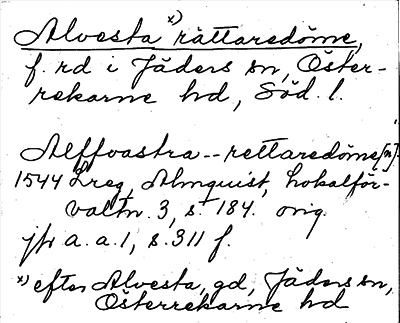 Alvesta x) rättaredöme,
f. rd i Jäders sn, Öster-
rekarne hd, Söd. l.
Alffvastra -- rettaredöme[n].
1544 Lreg, Almquist, Lokalför-
valtn. 3, s. 184. orig.
jfr a.a. 1, s. 311 f.
x) efter Alvesta, gd, Jäders sn,
Österrekarne hd